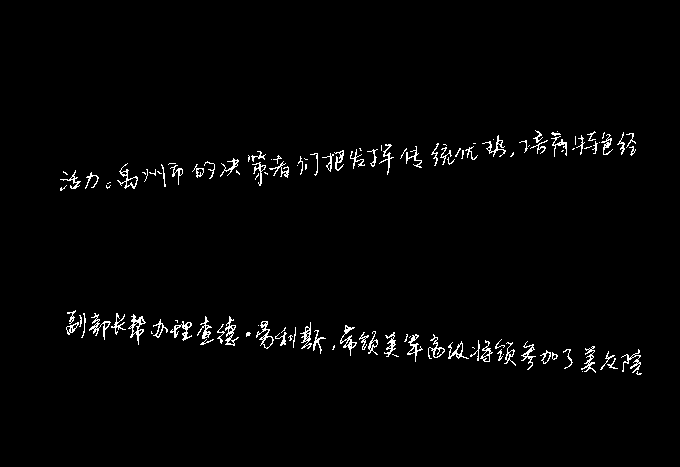 活力。禹州市的决策者们把发挥传统优势,培育特色经
副部长帮办理查德·劳利斯,带领美军高级将领参加了美众院